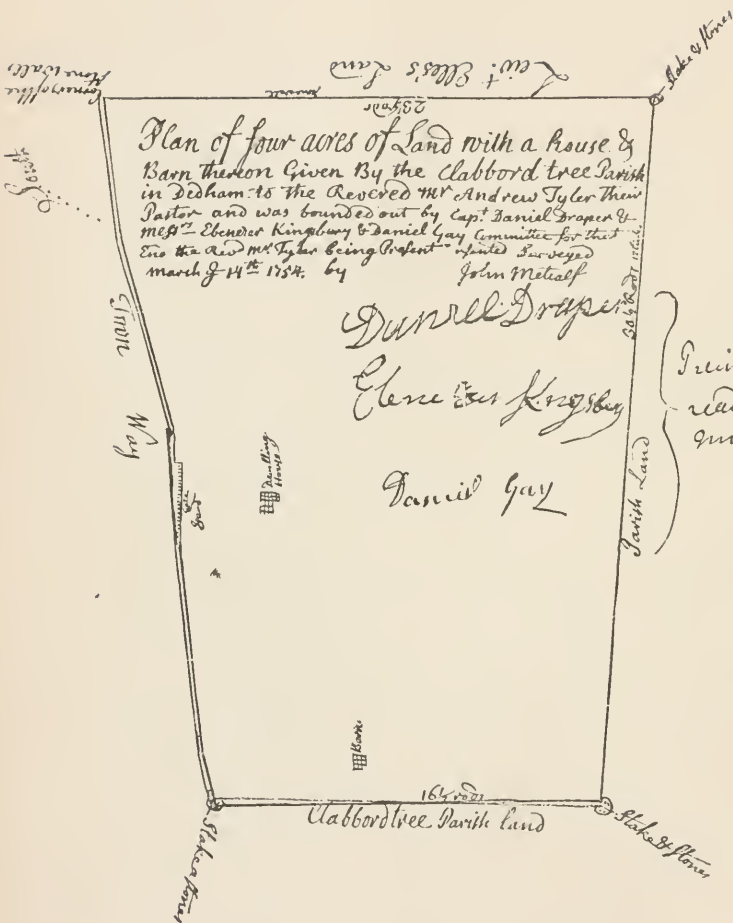 Stake & Stones
Corner of the
Stone Walls
Leivt Elles's Land
23½ rods
South
Plan of four acres of Land with a house &
Barn thereon Given By the Clabbord tree Parish
in Dedham to the Revered mr Andrew Tyler Their
Pastor and was bounded out by Capt Daniel Draper &
messrs Ebenezer Kingbury & Daniel Gay Committee for that
End the Revd mr Tyler being Present Surveyed
march ye 14th 1754. by John Metcalf
Daniell Draper
Ebenezer Kingsbery
Daniel Gay
Town Way
Dwelling
House
Yard
Parish Land
Barn
16½ rods
Clabbordtree Parish land
Stake & Stones
Stake & Stones